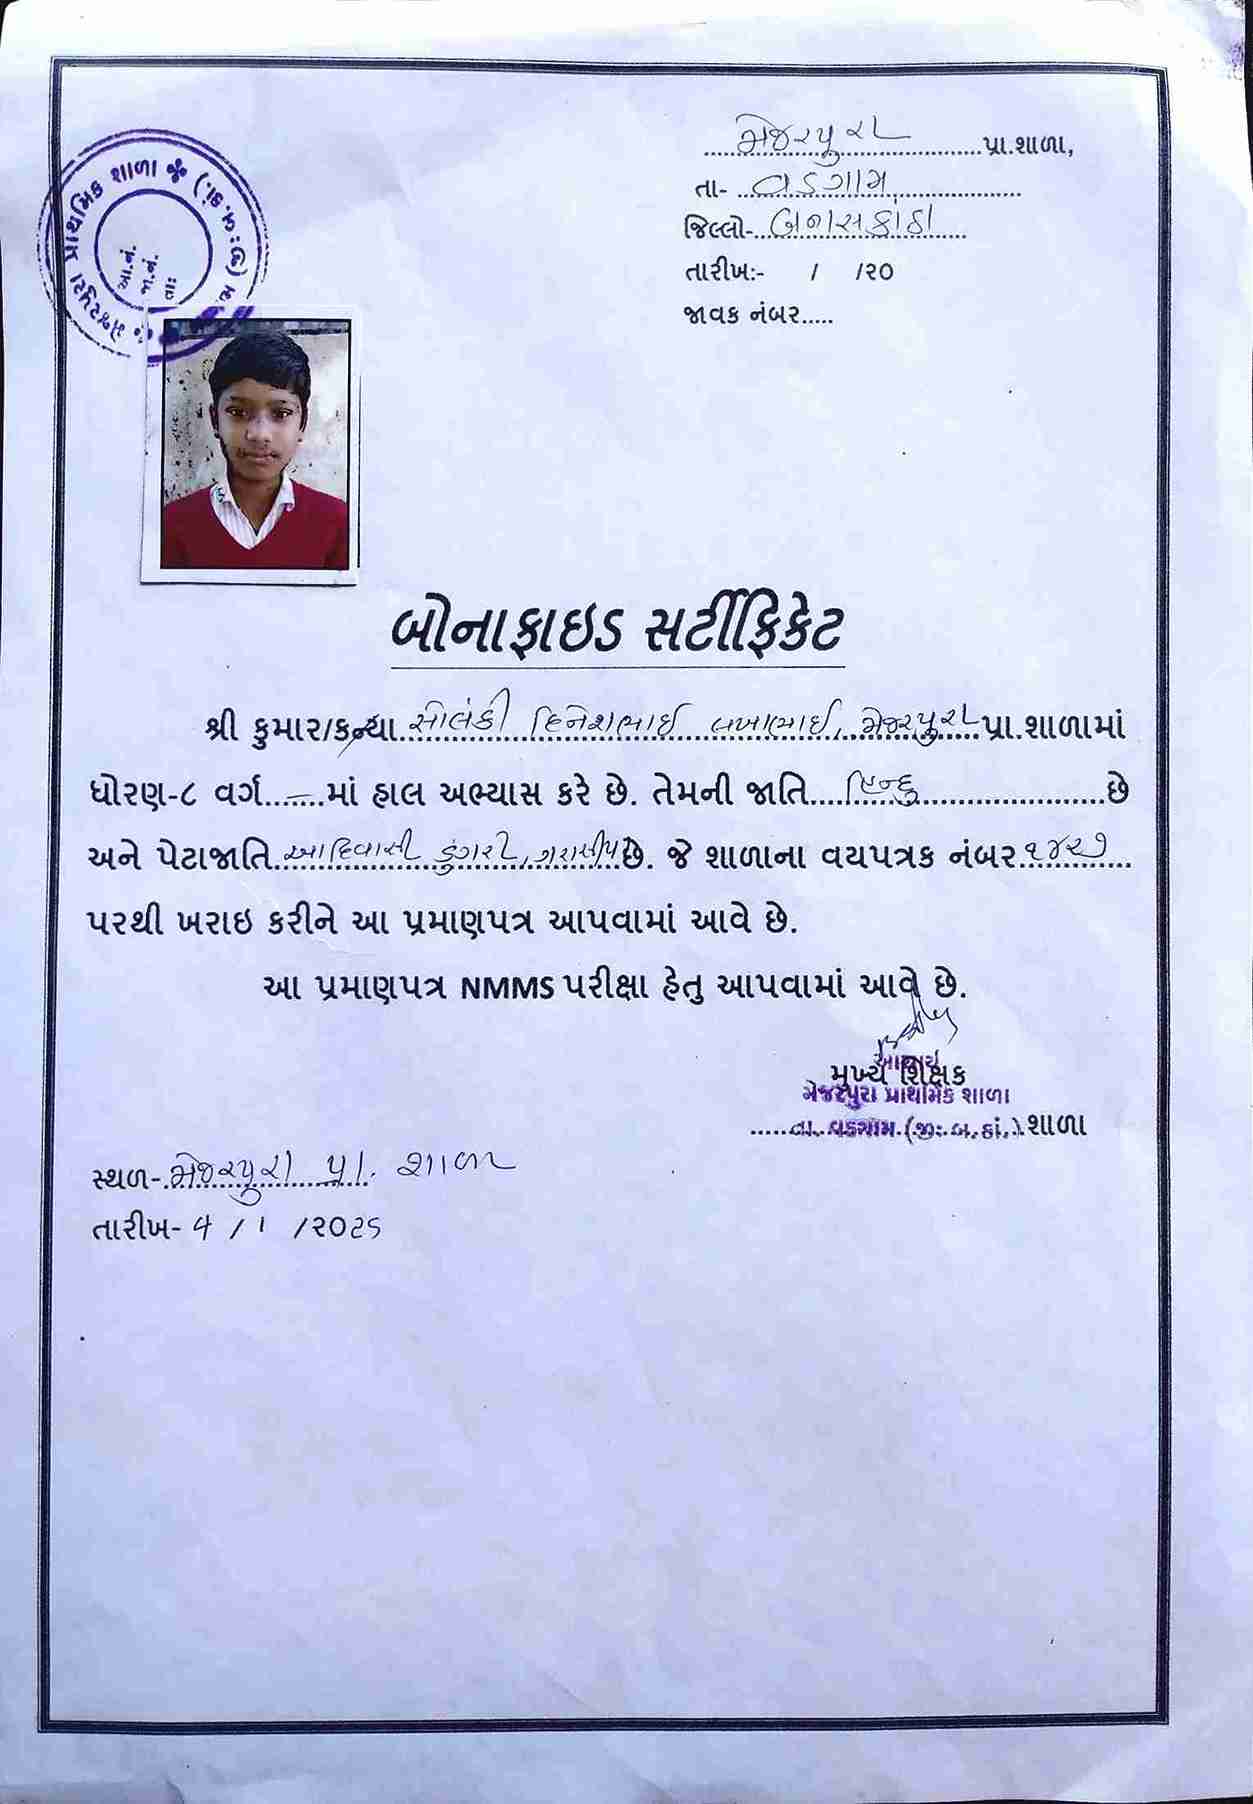 મેજરપુરા પ્રા.શાળા,
તા- વડગામ
જિલ્લો- બનાસકાંઠા
તારીખ:- / /૨૦
જાવક નંબર.....
મેજરપુરા પ્રાથમિક શાળા
(જી.બ.કાં.)
આ.નં.
જા.નં.
તાઃ
બોનાફાઇડ સર્ટીફિકેટ
શ્રી કુમાર/કન્યા સોલંકી દિનેશભાઈ લખાભાઈ, મેજરપુરા પ્રા.શાળામાં
ધોરણ-૮ વર્ગ...—...માં હાલ અભ્યાસ કરે છે. તેમની જાતિ હિન્દુ છે
અને પેટાજાતિ આદિવાસી ડુંગરી, ગરાસીયા છે. જે શાળાના વયપત્રક નંબર ૧૪૨૭
પરથી ખરાઇ કરીને આ પ્રમાણપત્ર આપવામાં આવે છે.
આ પ્રમાણપત્ર NMMS પરીક્ષા હેતુ આપવામાં આવે છે.
આચાર્ય
મુખ્ય શિક્ષક
મેજરપુરા પ્રાથમિક શાળા
તા. વડગામ (જી. બ. કાં.) શાળા
સ્થળ- મેજરપુરા પ્રા. શાળા
તારીખ- ૧ / ૧ /૨૦૨૬